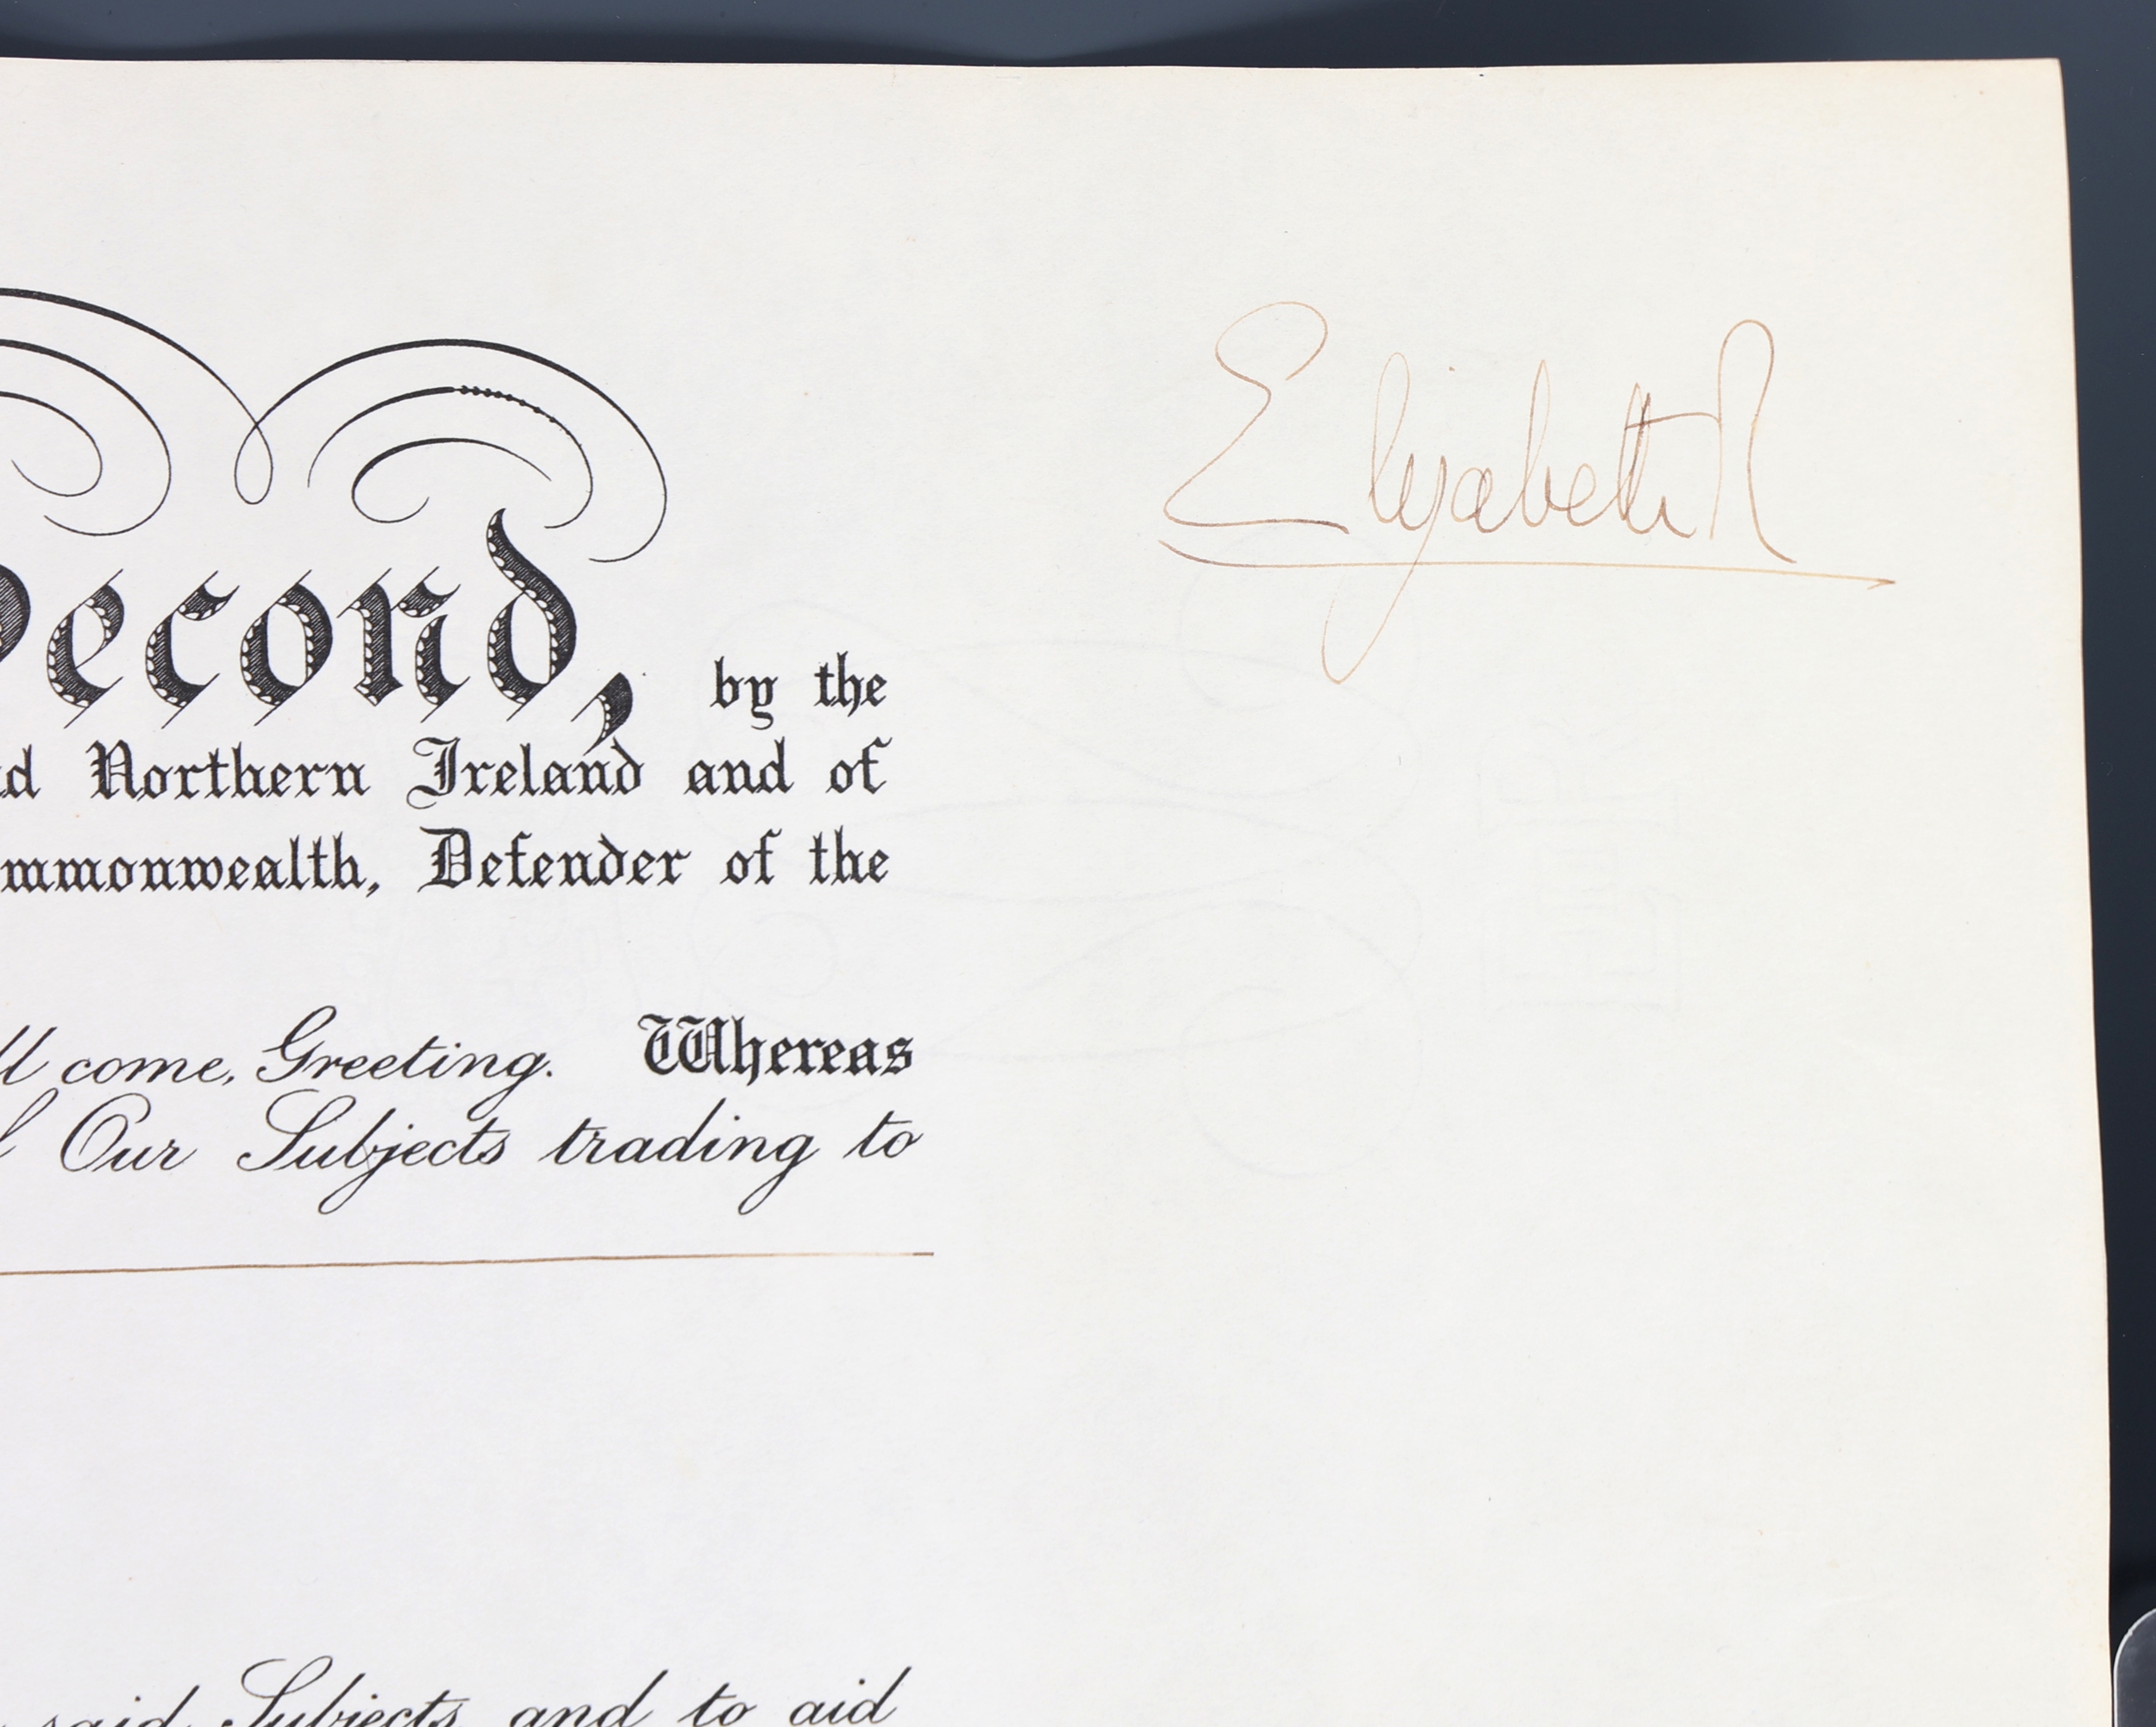 Elizabeth R
Second, by the
Northern Ireland and of
Commonwealth, Defender of the
come, Greeting. Whereas
Our Subjects trading to
said Subjects and to aid